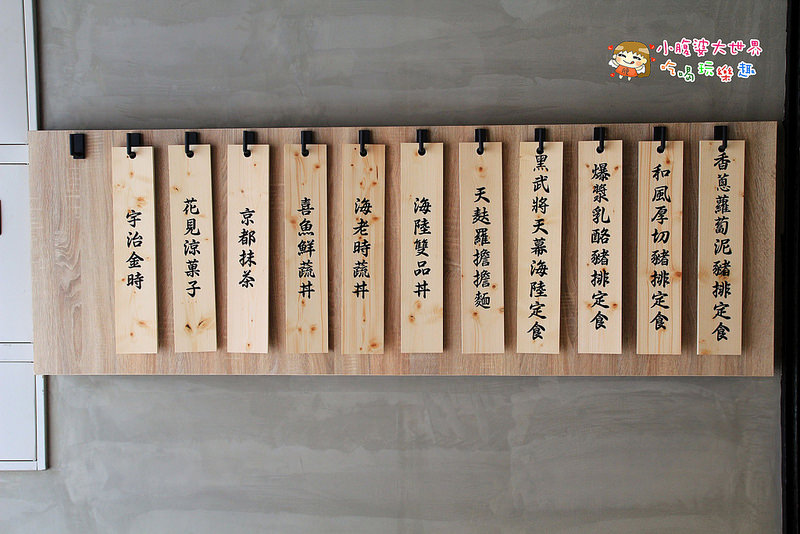 小腹婆大世界
吃喝玩樂趣
香蔥蘿蔔泥豬排定食
和風厚切豬排定食
爆漿乳酪豬排定食
黑武將天幕海陸定食
天麩羅擔擔麵
海陸雙品丼
海老時蔬丼
喜魚鮮蔬丼
京都抹茶
花見涼菓子
宇治金時